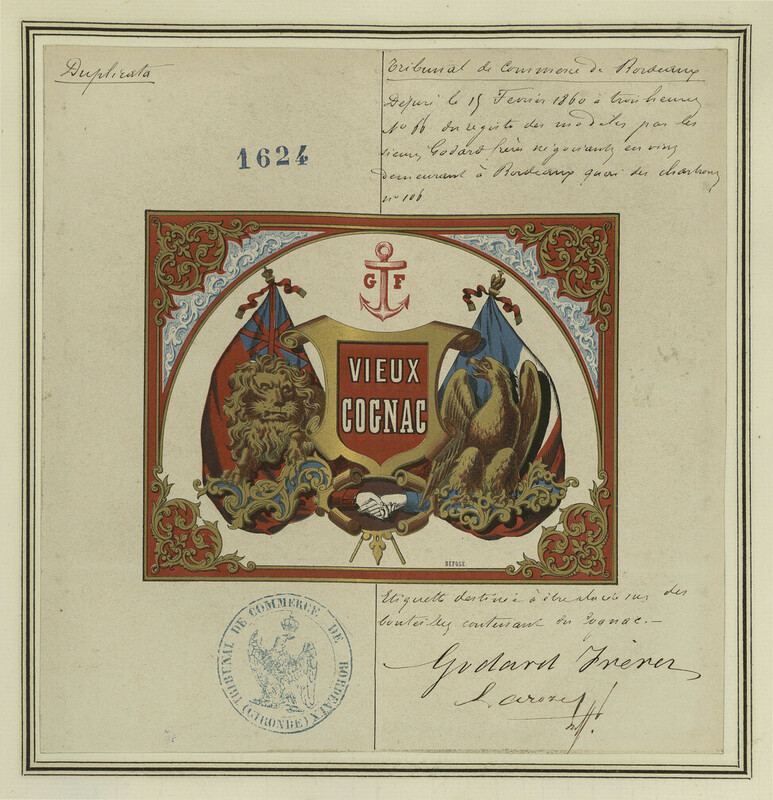 Duplicata
1624
Tribunal de Commerce de Bordeaux
Déposé le 15 Fevrier 1860 à trois heures
No 66 du registre des modèles par les
sieurs Godard frères négociants en vins
demeurant à Bordeaux quai des chartrons
no 106
G F
VIEUX
COGNAC
DÉPOSÉ.
Etiquette destinée à être placée sur des
bouteilles contenant du Cognac.—
Godard Frères
TRIBUNAL DE COMMERCE DE BORDEAUX
(GIRONDE)